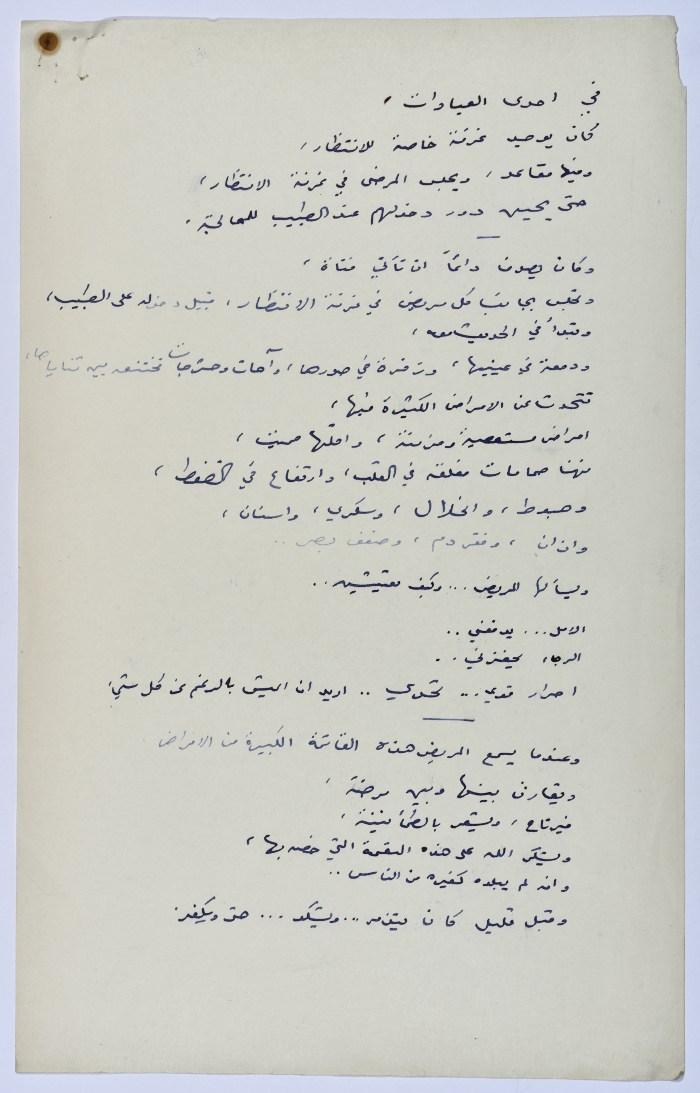 في احدى العيادات ،
كان يوجد غرفة خاصة للانتظار ،
وفيها مقاعد ، ويجلس المرضى في غرفة الانتظار ،
حتى يحين دور دخولهم عند الطبيب للمعالجة .
وكان يصدف دائماً ان تأتي فتاة ،
وتجلس بجانب كل مريض في غرفة الانتظار ، قبيل دخوله على الطبيب ،
وتبدأ في الحديث معه ،
ودمعة في عينيها ، وزفرة في صدرها ، وآهات وحشرجات تختنق بين ثناياها ،
تتحدث عن الامراض الكثيرة فيها ،
امراض مستعصية ومزمنة ، واقلّها مميت ،
منها صمامات مغلقة في القلب ، وارتفاع في الضغط ،
وهبوط ، وانحلال ، وسكري ، واسنان ،
واذان ، وفقر دم ، وضعف بصر ..
ويسألها المريض ... وكيف تعيشين ..
الامل ... يدفعني ..
الرجاء يحفزني ..
اصرار قوي ... تحدي .. اريد ان اعيش بالرغم عن كل شيء ،
وعندما يسمع المريض هذه القائمة الكبيرة من الامراض
ويقارن بينها وبين مرضه ،
فيرتاح ، ويشعر بالطمأنينة ،
ويشكر الله على هذه النعمة التي خصه بها ،
وانه لم يبله كغيره من الناس ..
وقبل قليل كان يتذمر ... ويشكو ... حتى ويكفر .